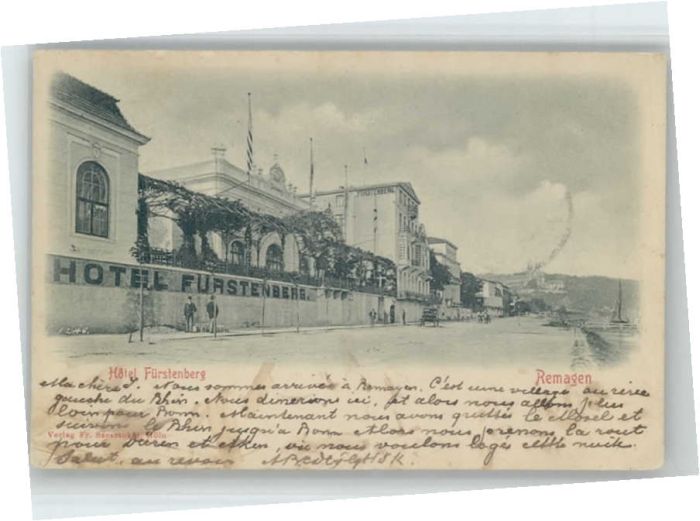 FÜRSTENBERG
HOTEL FÜRSTENBERG.
Hôtel Fürstenberg
Remagen
Ma chère J. Nous sommes arrivés à Remagen. C'est une village au rive
gauche du Rhin. Nous dinerons ici, et alors nous allons plus
loin pour Bonn. Maintenant nous avons quittés le Mosel et
suivons le Rhin jusqu'à Bonn. Alors nous prenons la rout
Verlag Fr. Köln
pour Düren et Aken, où nous voulons logé cette nuit.
Salut, au revoir